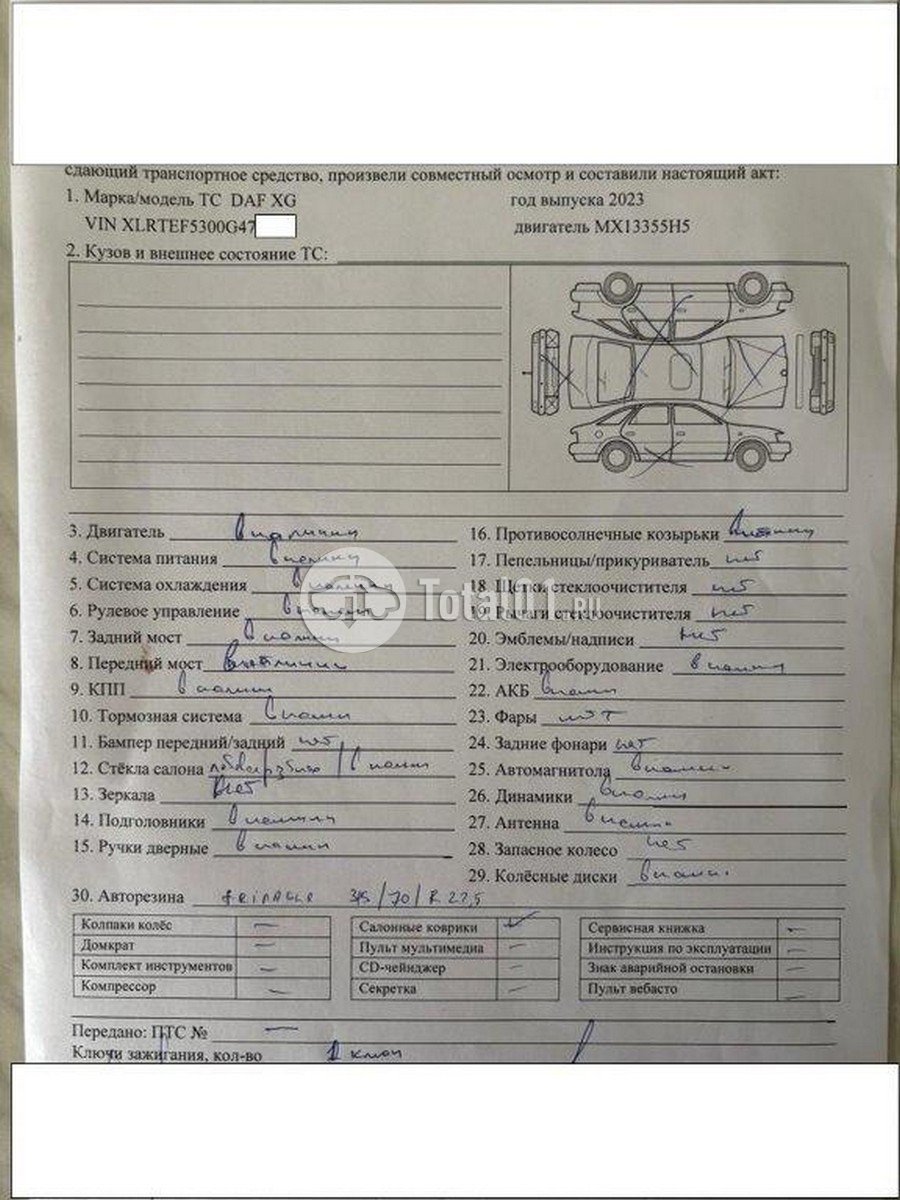 сдающий транспортное средство, произвели совместный осмотр и составили настоящий акт:
1. Марка/модель ТС DAF XG год выпуска 2023
VIN XLRTEF5300G47 двигатель MX13355H5
2. Кузов и внешнее состояние ТС:
3. Двигатель в наличии 16. Противосолнечные козырьки в наличии
4. Система питания в наличии 17. Пепельницы/прикуриватель нет
5. Система охлаждения в наличии 18 Щетки стеклоочистителя нет
6. Рулевое управление в наличии 19. Рычаги стеклоочистителя нет
7. Задний мост в наличии 20. Эмблемы/надписи нет
8. Передний мост в наличии 21. Электрооборудование в наличии
9. КПП в наличии 22. АКБ в наличии
10. Тормозная система в наличии 23. Фары нет
11. Бампер передний/задний нет 24. Задние фонари нет
12. Стёкла салона лобовое / в наличии 25. Автомагнитола в наличии
13. Зеркала нет 26. Динамики в наличии
14. Подголовники в наличии 27. Антенна в наличии
15. Ручки дверные в наличии 28. Запасное колесо нет
29. Колёсные диски в наличии
30. Авторезина 315/70/R 22,5
Колпаки колёс — Салонные коврики ✓ Сервисная книжка —
Домкрат — Пульт мультимедиа — Инструкция по эксплуатации —
Комплект инструментов — CD-чейнджер — Знак аварийной остановки —
Компрессор — Секретка — Пульт вебасто —
Передано: ПТС № —
Ключи зажигания, кол-во 1 ключ
Total01.RU